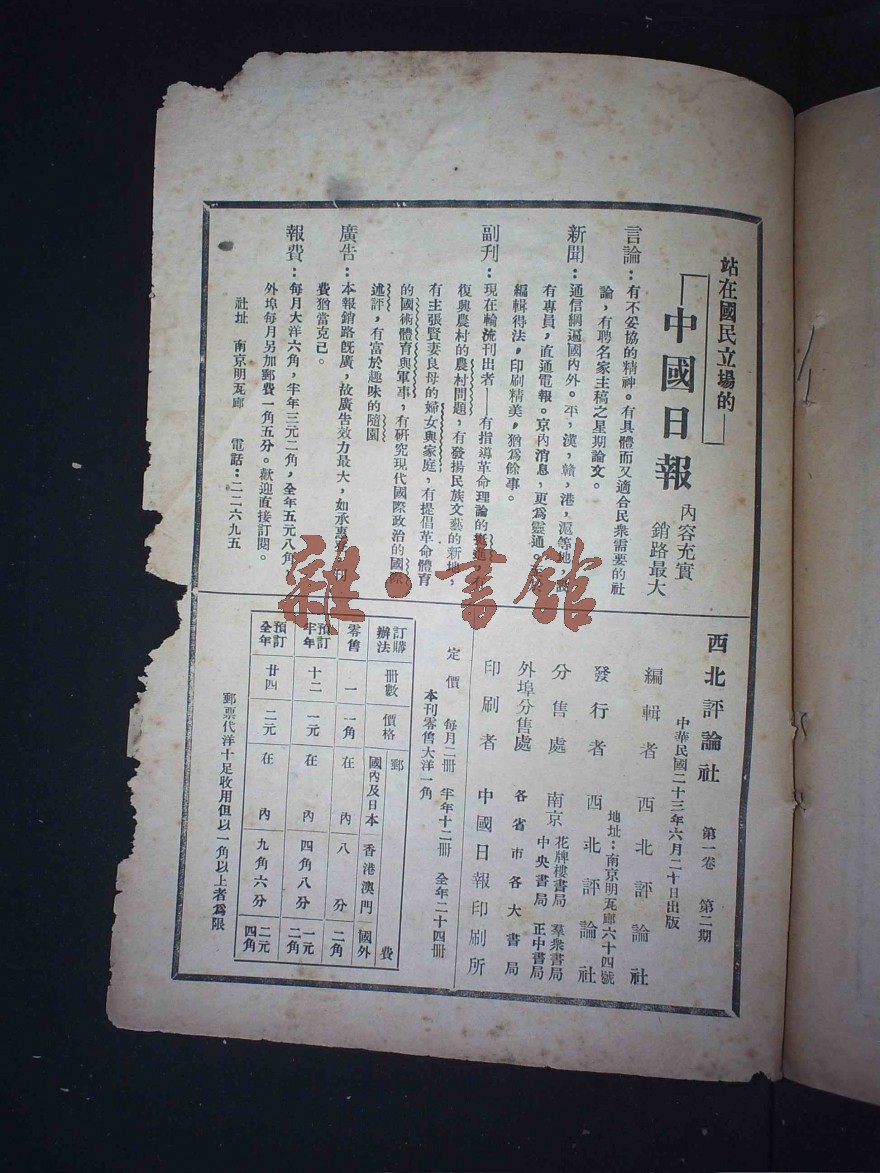 站在國民立場的——
「中國日報」
內容充實
銷路最大
言論：有不妥協的精神。有具體而又適合民衆需要的社
論，有聘名家主稿之星期論文。
新聞：通信網遍國內外。平，漢，贛，港，滬等地，設
有專員，直通電報。京內消息，更爲靈通。
編輯得法，印刷精美，猶爲餘事。
副刊：現在輪流刊出者——有指導革命理論的
復興農村的農村問題，有發揚民族文藝的新地，
有主張賢妻良母的婦女與家庭，有提倡革命體育
的國術體育與軍事，有研究現代國際政治的國際
述評，有富於趣味的隨園
廣告：本報銷路旣廣，故廣告效力最大，如承惠
費猶當克己。
報費：每月大洋六角，半年三元二角，全年五元八角，
外埠每月另加郵費一角五分。歡迎直接訂閱。
社址　南京明瓦廊　電話：二二六九五
雜·書館
西北評論社　第一卷　第二期
中華民國二十三年六月二十日出版
編輯者　西北評論社
地址：南京明瓦廊六十四號
發行者　西北評論社
分售處　南京　花牌樓書局　羣衆書局
中央書局　正中書局
外埠分售處　各省市各大書局
印刷者　中國日報印刷所
定價　每月二冊　半年十二冊　全年二十四冊
本刊零售大洋一角
訂購辦法　冊數　價格　郵費　國內及日本　香港澳門　國外
零售　一　一角　在內　八分　二角
預訂半年　十二　一元　在內　四角八分　一元二角
預訂全年　廿四　二元　在內　九角六分　二元四角
郵票代洋十足收用但以一角以上者爲限